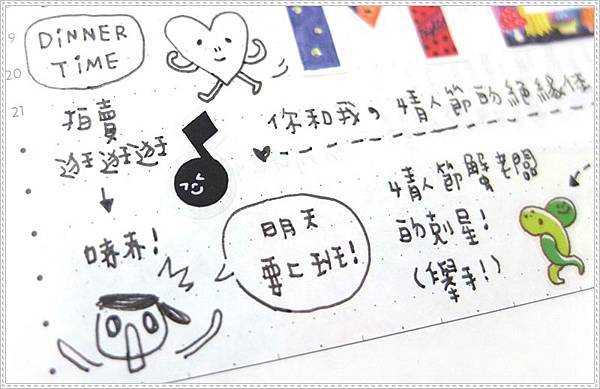 DiNNER
TiME
9
20
21
拍賣
逛逛逛
你和我の情人節的絕緣体
情人節蟹老闆
的剋星!
(舉手!)
明天
要上班!